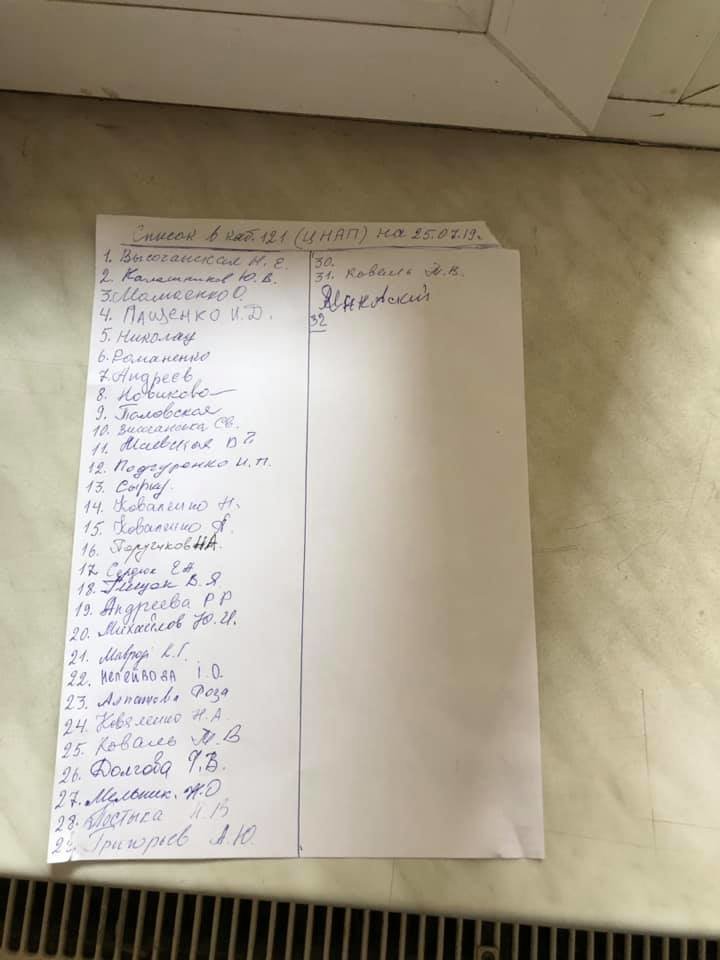 Список в каб.121 (ЦНАП) на 25.07.19.
1. Высочанская Н. Е.
2. Калашников Ю. В.
3. Мамаенко О.
4. ПАЩЕНКО И. Д.
5. Николау
6. Романенко
7. Андреев
8. Новикова
9. Паловская
10. Височанська Св.
11.
12. Подгуренко И. П.
13. Сырку.
14. Коваленко Н.
15. Коваленко А.
16. Поручиков НА.
17. Сердюк Е А
18. Грицак В. Я
19. Андреева Р Р
20. Михайлов Ю. И.
21. Мавроди К. Г.
22. НЕПЕЙВОДА І. О.
23. Алпатова Роза
24. Коваленко Н. А
25. Коваль М. В
26. Долгова Т. В.
27. Мельник. Ж. О
28. Постыка П. В
29. Григорьев А. Ю.
30.
31. Коваль Н. В.
32